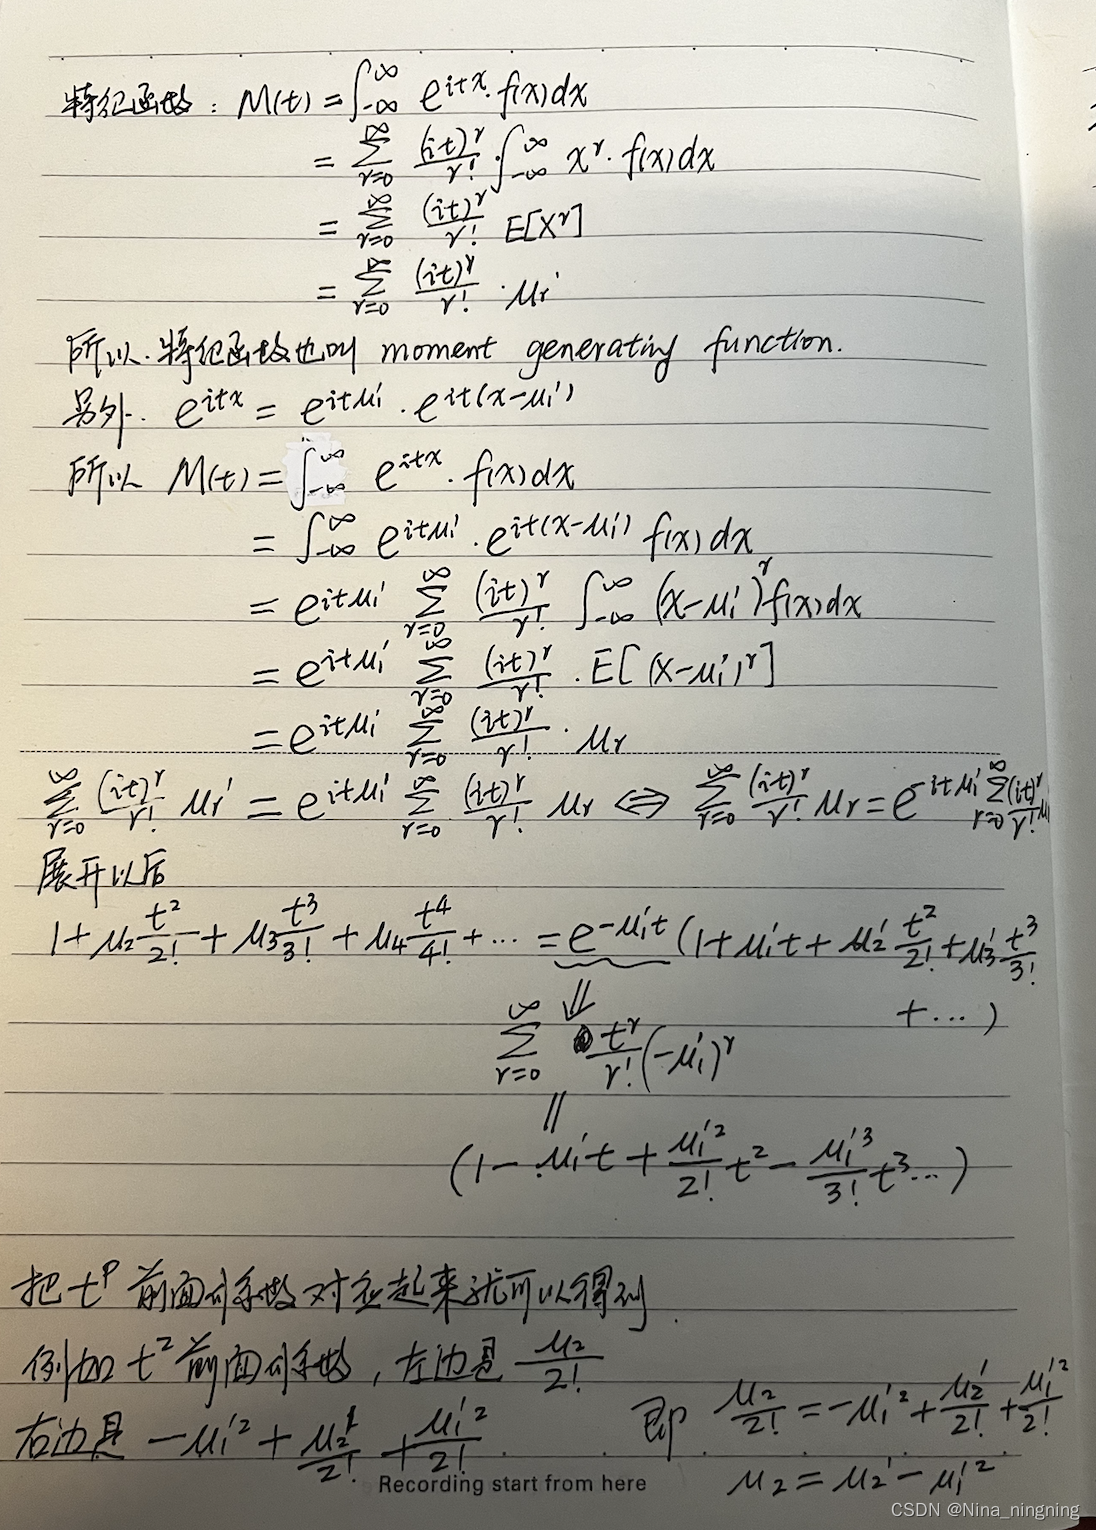 特征函数: M(t) = ∫_{-∞}^{∞} e^{itx}·f(x)dx
= ∑_{r=0}^{∞} (it)^r/r! · ∫_{-∞}^{∞} x^r·f(x)dx
= ∑_{r=0}^{∞} (it)^r/r! E[X^r]
= ∑_{r=0}^{∞} (it)^r/r! · μ_r'
所以.特征函数也叫 moment generating function.
另外. e^{itx} = e^{itμ_1'} · e^{it(x-μ_1')}
所以 M(t) = ∫_{-∞}^{∞} e^{itx}·f(x)dx
= ∫_{-∞}^{∞} e^{itμ_1'} · e^{it(x-μ_1')} f(x)dx
= e^{itμ_1'} ∑_{r=0}^{∞} (it)^r/r! ∫_{-∞}^{∞} (x-μ_1')^r f(x)dx
= e^{itμ_1'} ∑_{r=0}^{∞} (it)^r/r! · E[(X-μ_1')^r]
= e^{itμ_1'} ∑_{r=0}^{∞} (it)^r/r! · μ_r
∑_{r=0}^{∞} (it)^r/r! μ_r' = e^{itμ_1'} ∑_{r=0}^{∞} (it)^r/r! μ_r ⇔ ∑_{r=0}^{∞} (it)^r/r! μ_r = e^{-itμ_1'} ∑_{r=0}^{∞} (it)^r/r!
展开以后
1+μ_2 t^2/2! + μ_3 t^3/3! + μ_4 t^4/4! + ··· = e^{-μ_1't} (1+μ_1't+μ_2' t^2/2! + μ_3' t^3/3!
+ ··· )
∑_{r=0}^{∞} t^r/r! (-μ_1')^r
(1-μ_1't + μ_1'^2/2! t^2 - μ_1'^3/3! t^3 ... )
把 t^p 前面的系数对应起来就可以得到.
例如 t^2 前面的系数, 左边是 μ_2/2!
右边是 -μ_1'^2 + μ_2'/2! + μ_1'^2/2! 即 μ_2/2! = -μ_1'^2 + μ_2'/2! + μ_1'^2/2!
μ_2 = μ_2' - μ_1'^2
Recording start from here
CSDN @Nina_ningning